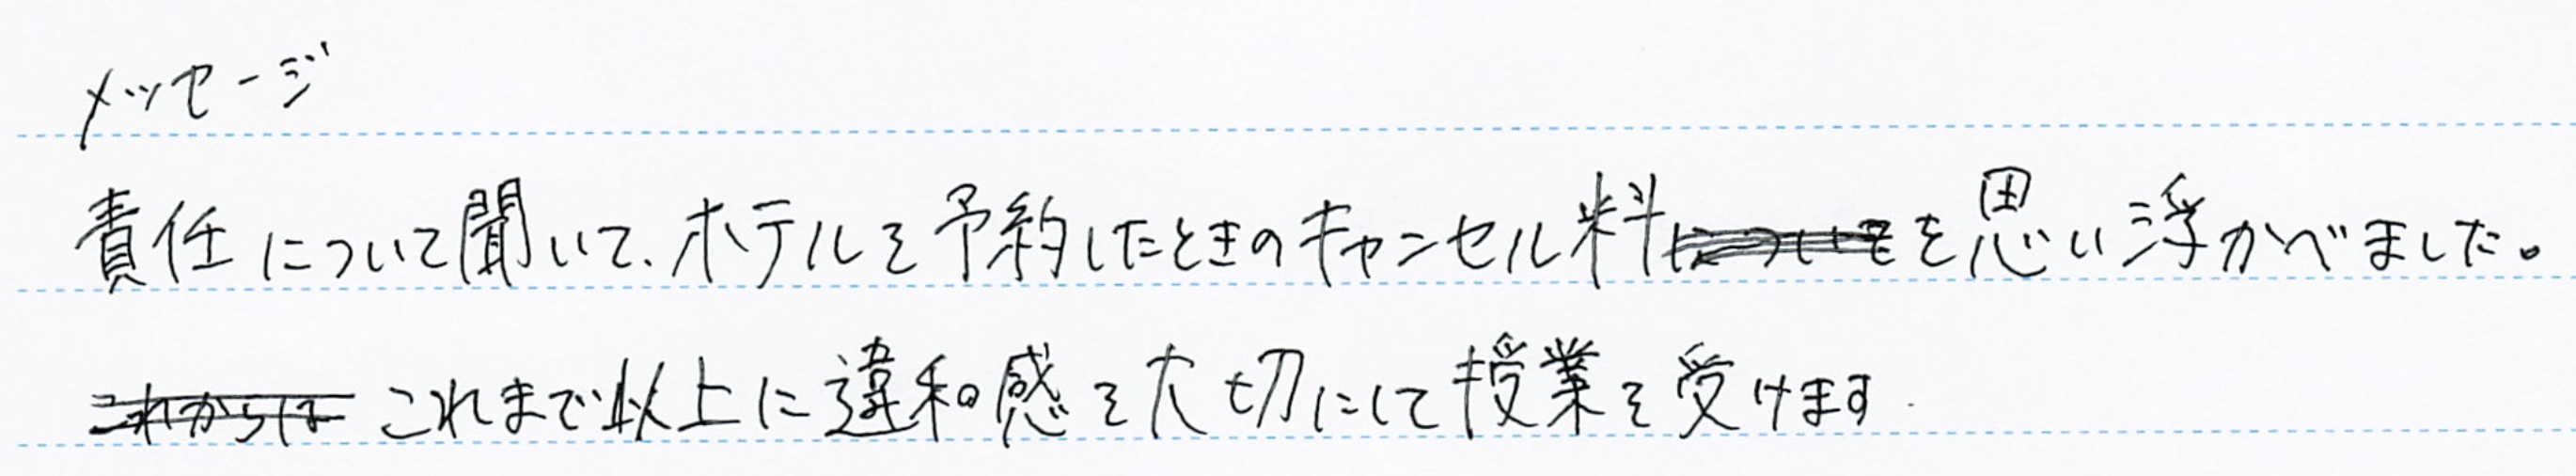 メッセージ
責任について聞いて、ホテルを予約したときのキャンセル料を思い浮かべました。
これまで以上に違和感を大切にして授業を受けます.